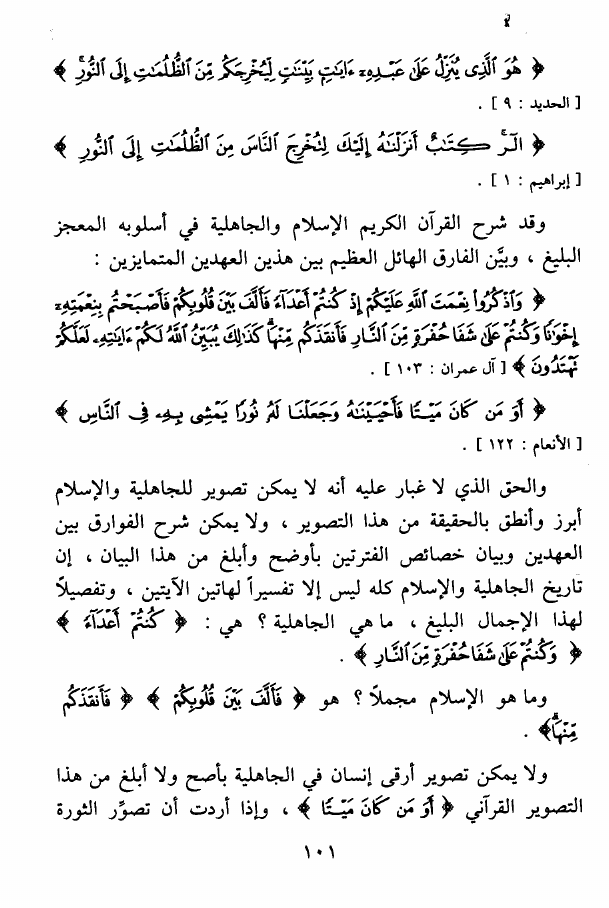 ﴿ هُوَ ٱلَّذِى يُنَزِّلُ عَلَىٰ عَبْدِهِۦٓ ءَايَٰتٍۭ بَيِّنَٰتٍ لِّيُخْرِجَكُم مِّنَ ٱلظُّلُمَٰتِ إِلَى ٱلنُّورِ ﴾
[ الحديد : ٩ ] .
﴿ الٓر ۚ كِتَٰبٌ أَنزَلْنَٰهُ إِلَيْكَ لِتُخْرِجَ ٱلنَّاسَ مِنَ ٱلظُّلُمَٰتِ إِلَى ٱلنُّورِ ﴾
[ إبراهيم : ١ ] .
وقد شرح القرآن الكريم الإسلام والجاهلية في أسلوبه المعجز
البليغ ، وبيَّن الفارق الهائل العظيم بين هذين العهدين المتمايزين :
﴿ وَٱذْكُرُوا۟ نِعْمَتَ ٱللَّهِ عَلَيْكُمْ إِذْ كُنتُمْ أَعْدَآءً فَأَلَّفَ بَيْنَ قُلُوبِكُمْ فَأَصْبَحْتُم بِنِعْمَتِهِۦٓ
إِخْوَٰنًا وَكُنتُمْ عَلَىٰ شَفَا حُفْرَةٍ مِّنَ ٱلنَّارِ فَأَنقَذَكُم مِّنْهَا ۗ كَذَٰلِكَ يُبَيِّنُ ٱللَّهُ لَكُمْ ءَايَٰتِهِۦ لَعَلَّكُمْ
تَهْتَدُونَ ﴾ [ آل عمران : ١٠٣ ] .
﴿ أَوَ مَن كَانَ مَيْتًا فَأَحْيَيْنَٰهُ وَجَعَلْنَا لَهُۥ نُورًا يَمْشِى بِهِۦ فِى ٱلنَّاسِ ﴾
[ الأنعام : ١٢٢ ] .
والحق الذي لا غبار عليه أنه لا يمكن تصوير للجاهلية والإسلام
أبرز وأنطق بالحقيقة من هذا التصوير ، ولا يمكن شرح الفوارق بين
العهدين وبيان خصائص الفترتين بأوضح وأبلغ من هذا البيان ، إن
تاريخ الجاهلية والإسلام كله ليس إلا تفسيراً لهاتين الآيتين ، وتفصيلاً
لهذا الإجمال البليغ ، ما هي الجاهلية ؟ هي : ﴿ كُنتُمْ أَعْدَآءً ﴾
﴿ وَكُنتُمْ عَلَىٰ شَفَا حُفْرَةٍ مِّنَ ٱلنَّارِ ﴾ .
وما هو الإسلام مجملاً ؟ هو ﴿ فَأَلَّفَ بَيْنَ قُلُوبِكُمْ ﴾ ﴿ فَأَنقَذَكُم
مِّنْهَا ۗ﴾ .
ولا يمكن تصوير أرقى إنسان في الجاهلية بأصح ولا أبلغ من هذا
التصوير القرآني ﴿ أَوَ مَن كَانَ مَيْتًا ﴾ ، وإذا أردت أن تصوِّر الثورة
١٠١